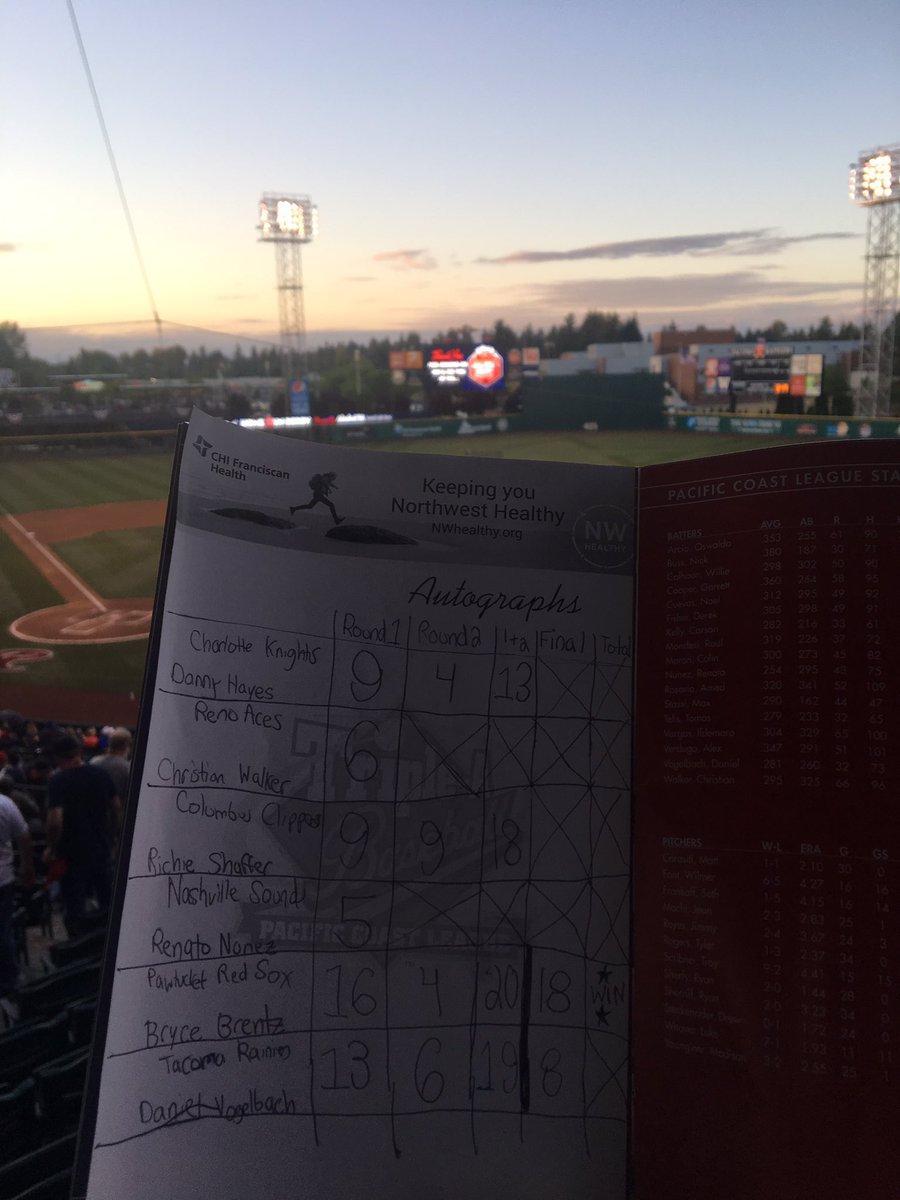 CHI Franciscan
Health
Keeping you
Northwest Healthy
NWhealthy.org
NW
HEALTHY
Autographs
Round 1 Round 2 1+2 Final Total
Charlotte Knights
Danny Hayes 9 4 13
Reno Aces
Christian Walker 6
Columbus Clippers
Richie Shaffer 9 9 18
Nashville Sounds
Renato Nunez 5
Pawtucket Red Sox
Bryce Brentz 16 4 20 18 WIN
Tacoma Rainiers
Daniel Vogelbach 13 6 19 8
Triple
Baseball
PACIFIC COAST LEAGUE
PACIFIC COAST LEAGUE STA
BATTERS AVG AB R H
Arcia, Oswaldo 353 255 61 90
Buss, Nick 380 187 30 71
Calhoun, Willie 298 302 50 90
Cooper, Garrett 360 264 58 95
Cuevas, Noel 312 295 49 92
Fisher, Derek 305 298 49 91
Kelly, Carson 282 216 33 61
Mondesi, Raul 319 226 37 72
Moran, Colin 300 273 45 82
Nunez, Renato 254 295 48 75
Rosario, Amed 320 341 52 109
Stassi, Max 290 162 44 47
Telis, Tomas 279 233 32 65
Vargas, Ildemaro 304 329 65 100
Verdugo, Alex 347 291 51 101
Vogelbach, Daniel 281 260 32 73
Walker, Christian 295 325 66 96
PITCHERS W-L ERA G GS
Carasiti, Matt 1-1 2.10 30 0
Font, Wilmer 6-5 4.27 16 16
Frankoff, Seth 1-5 4.15 16 14
Machi, Jean 2-3 2.83 25 1
Reyes, Jimmy 2-4 3.67 24 3
Rogers, Tyler 1-3 2.37 34 0
Scribner, Troy 9-2 4.41 15 15
Sherfy, Ryan